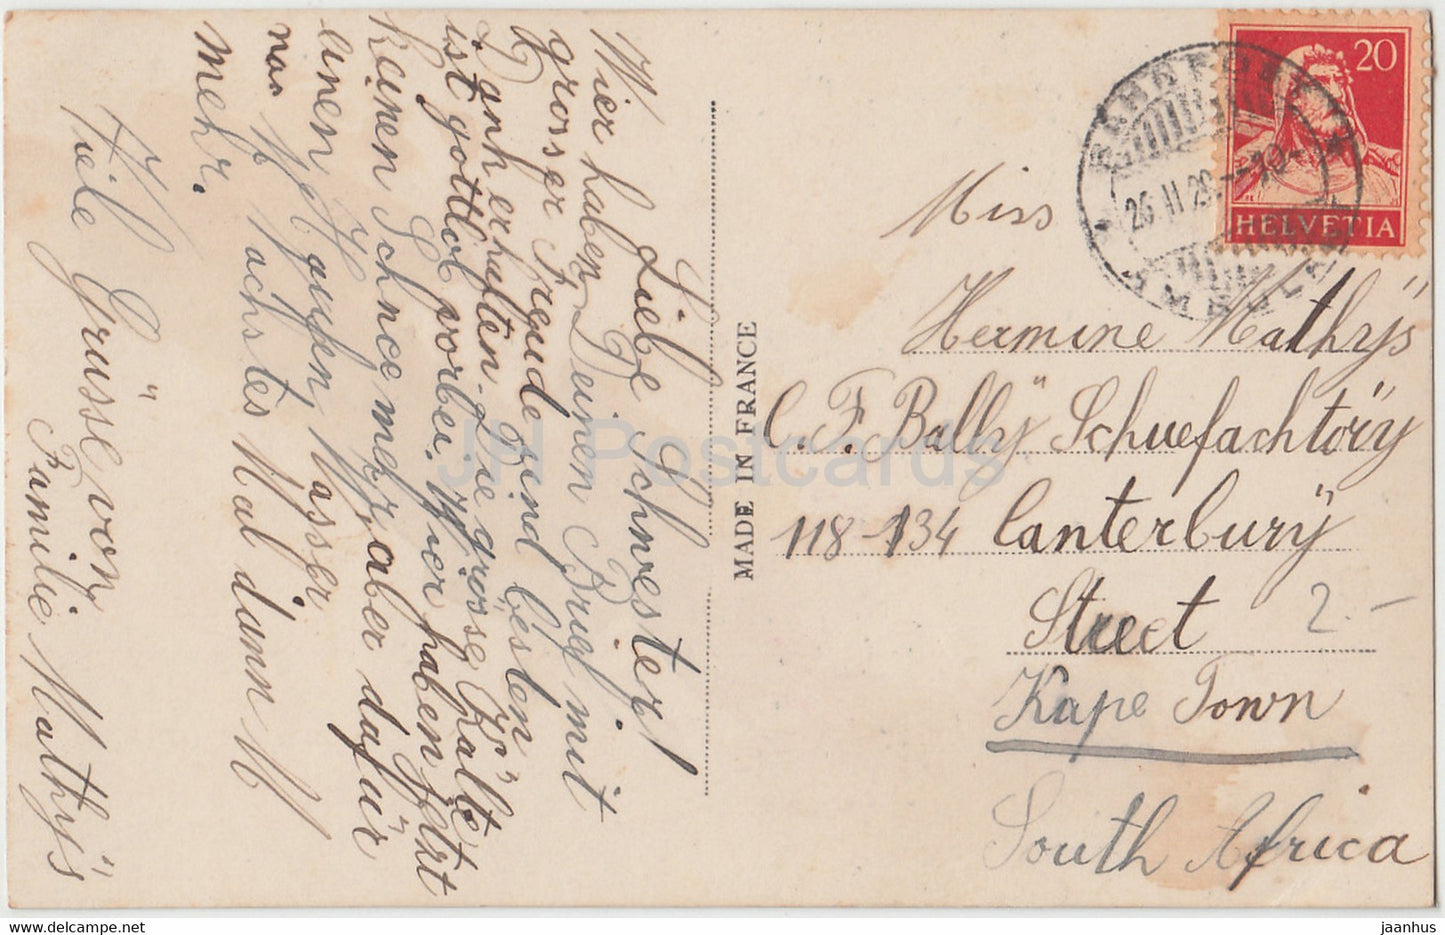 Liebe Schwester!
Wier haben Deinen Brief mit
grosser Freude und besten
Dank erhalten. Die grosse Kälte
ist gottlob vorbei. Wier haben jetzt
keinen Schnee merz, aber dafür
einen ganzen Wasser
Nachstes Mal dann M
mehr.
Viele Grüsse von
Familie Mathÿs
MADE IN FRANCE
HELVETIA
20
26.II.29.-10-
Miss
Hermine Mathÿs
C. F. Ballÿ Schuefachtörÿ
118-134 Canterburÿ
Street
Kape Town
South Africa
2.-
JH Postcards
www.hippostcard.com
jaanhus